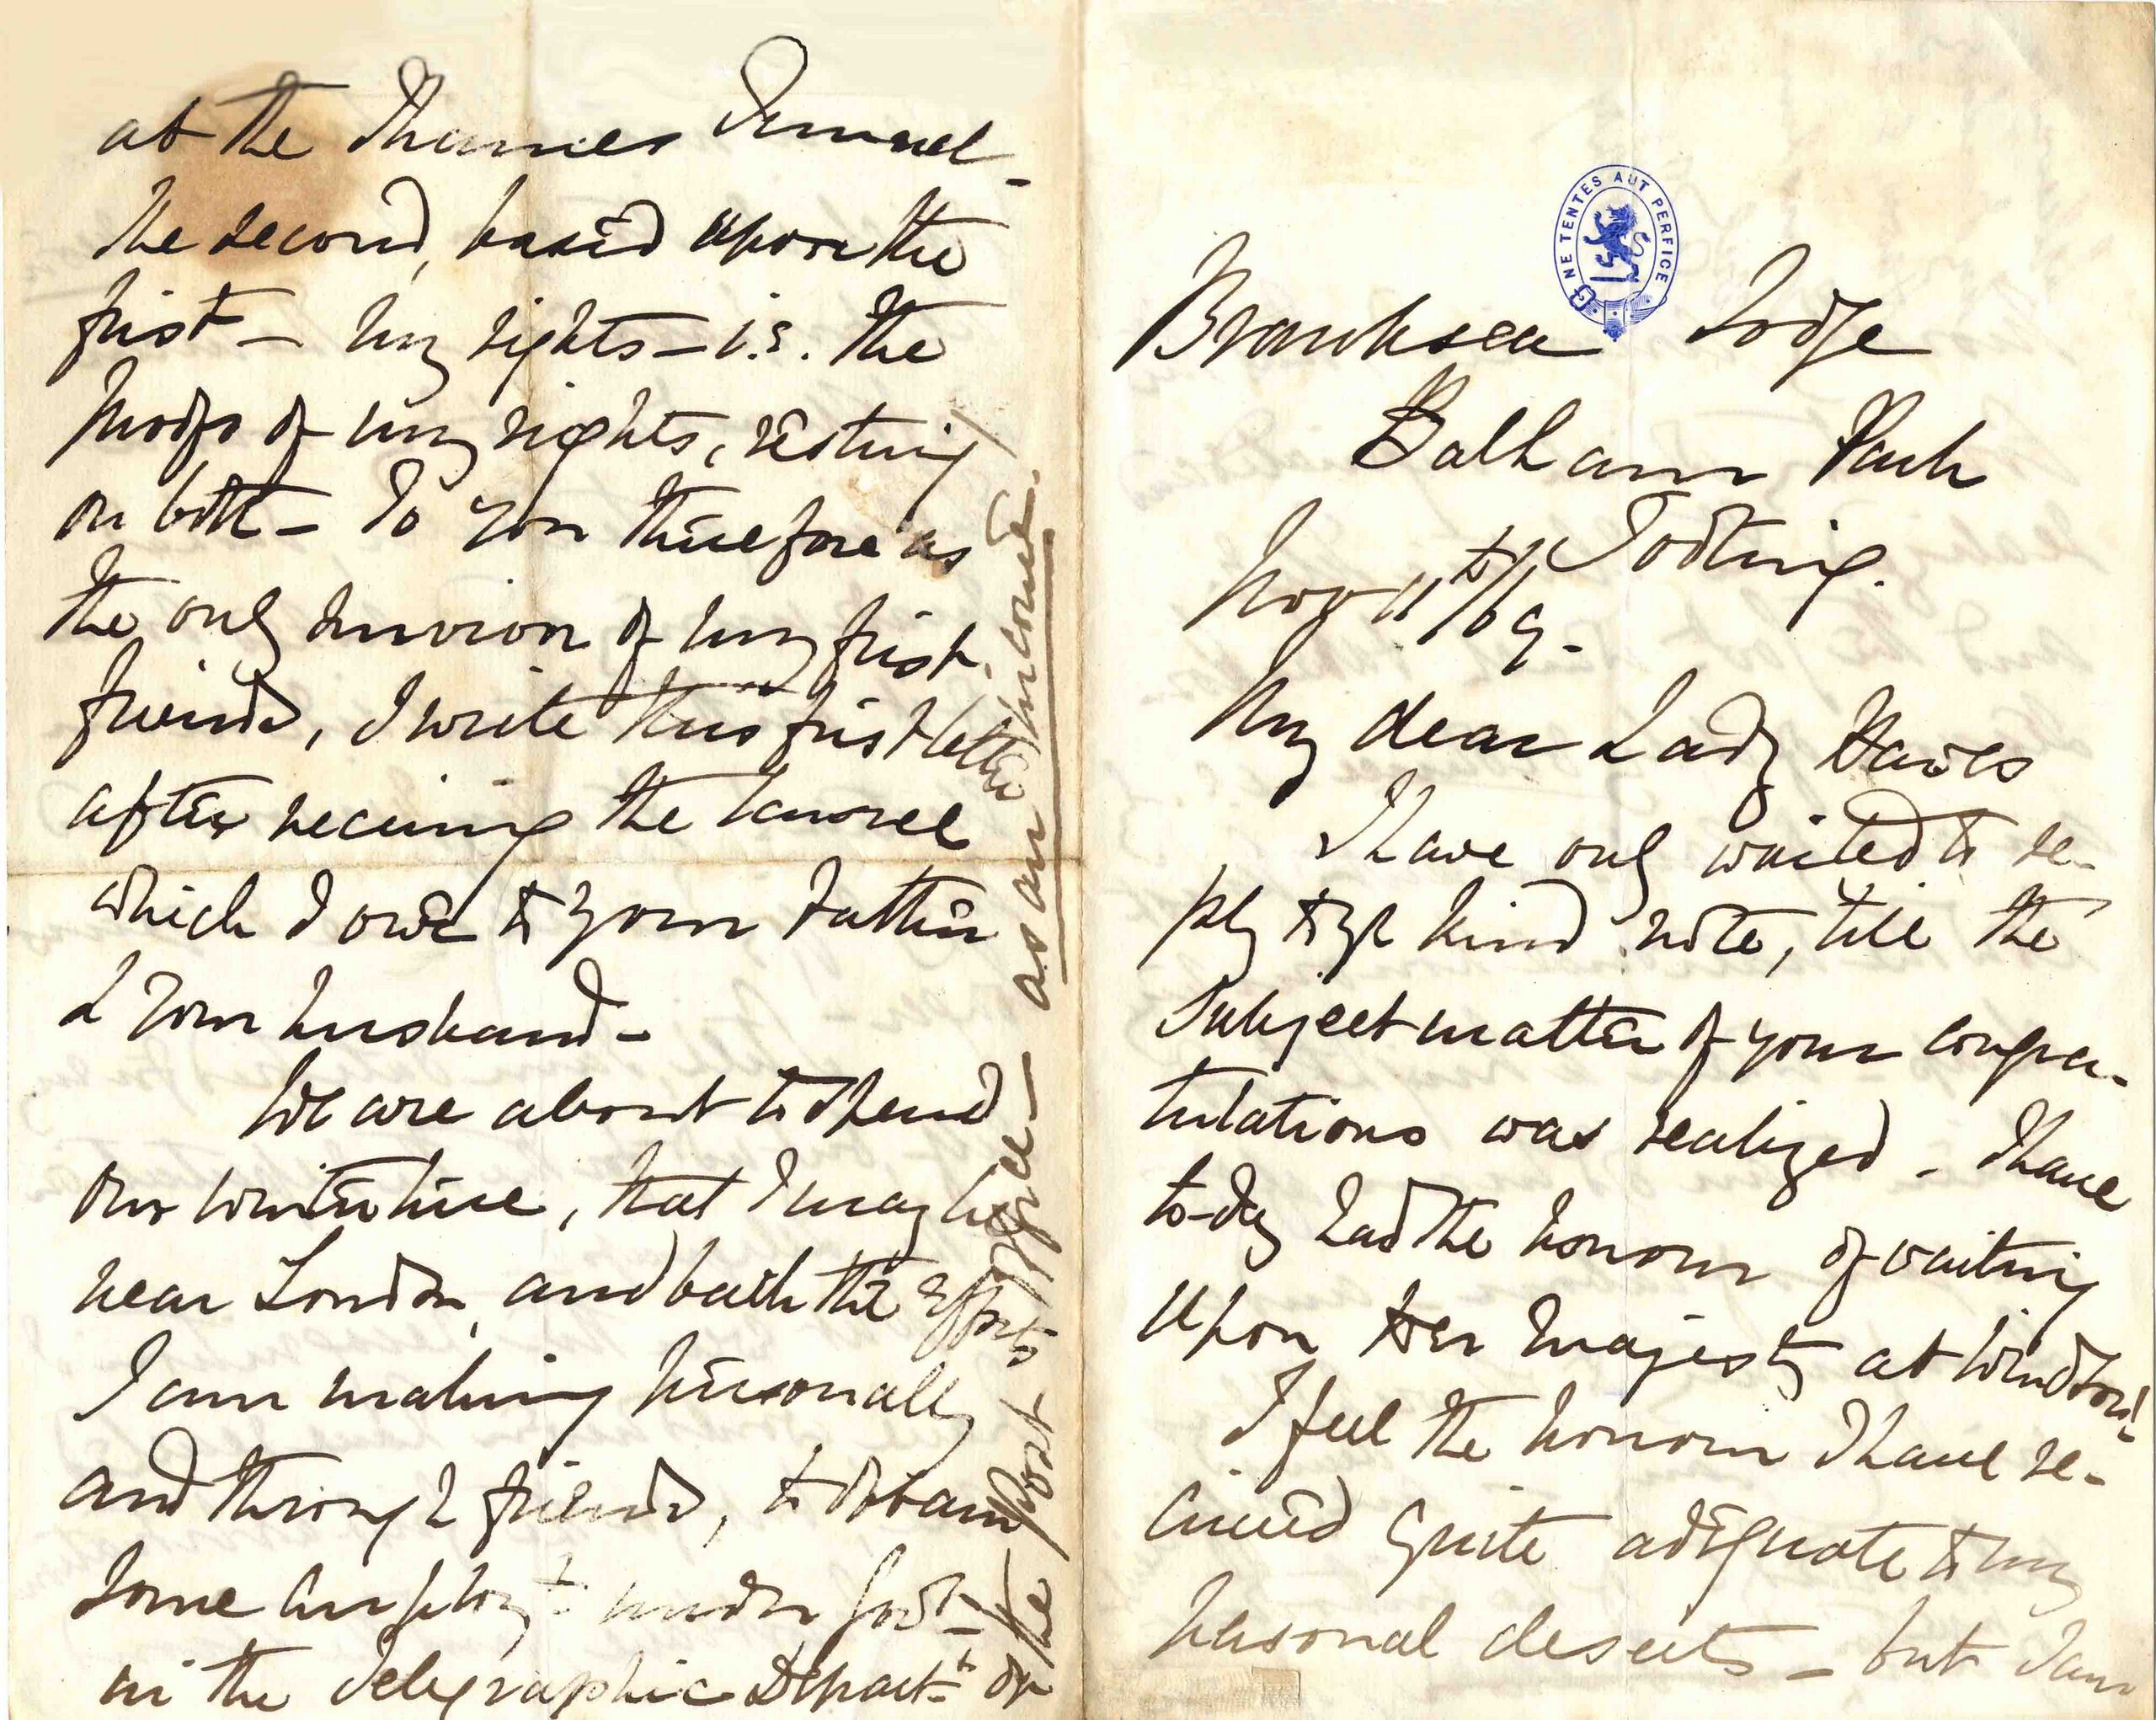 NE TENTES AUT PERFICE
Branksea Lodge
Balham Park
Tooting.
Nov 11th/69.
My dear Lady Hawes
I have only waited to re-
ply to yr kind note, till the
subject matter of your congra-
tulations was realized. I have
to-day had the honour of waiting
upon Her Majesty at Windsor!
I feel the honour I have re-
ceived quite adequate to my
personal deserts - but I am
at the Thames Tunnel -
the second, based upon the
first - my rights - i.e. the
proofs of my rights, resting
on both - To you therefore as
the only survivor of my first
friends, I write this first letter
after receiving the laurel
which I owe to your Father
& your husband -
We are about to spend
our winter here, that I may be
near London, and back the efforts
I am making personally
and through friends, to obtain
some employt under Govt -
in the Telegraphic Departt of
the Post Office - as an income.